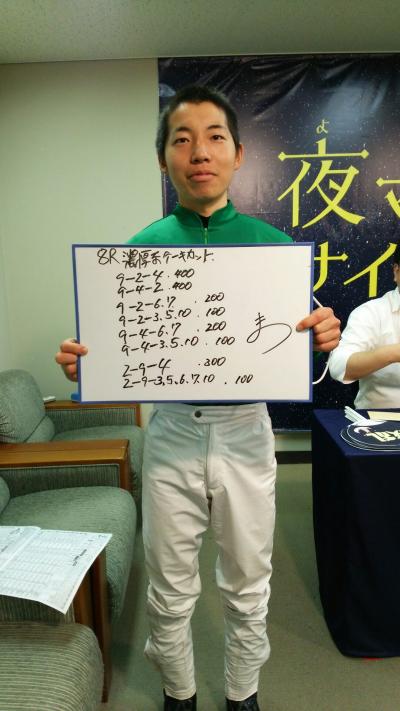 8R 濃厚系ケーキカット.
9-2-4 .400
9-4-2 .400
9-2-6.7 .200
9-2-3.5.10 .100
9-4-6.7 .200
9-4-3.5.10 .100
2-9-4 .300
2-9-3,5.6.7.10 .100
よ
夜
ナイ